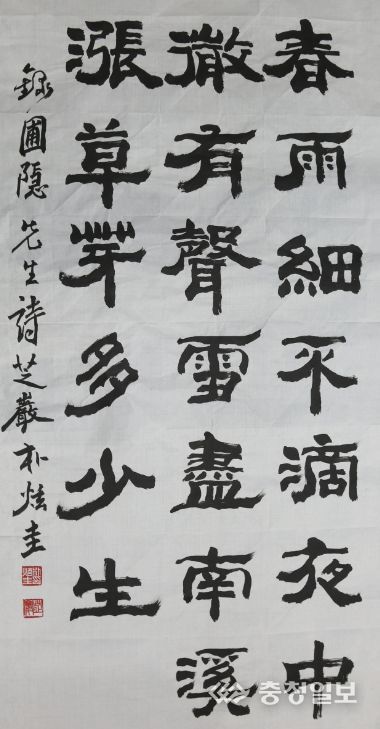 春雨細不滴夜中
微有聲雪盡南溪
漲草芽多少生
錄圃隱先生詩芝巖朴炫圭
충청일보